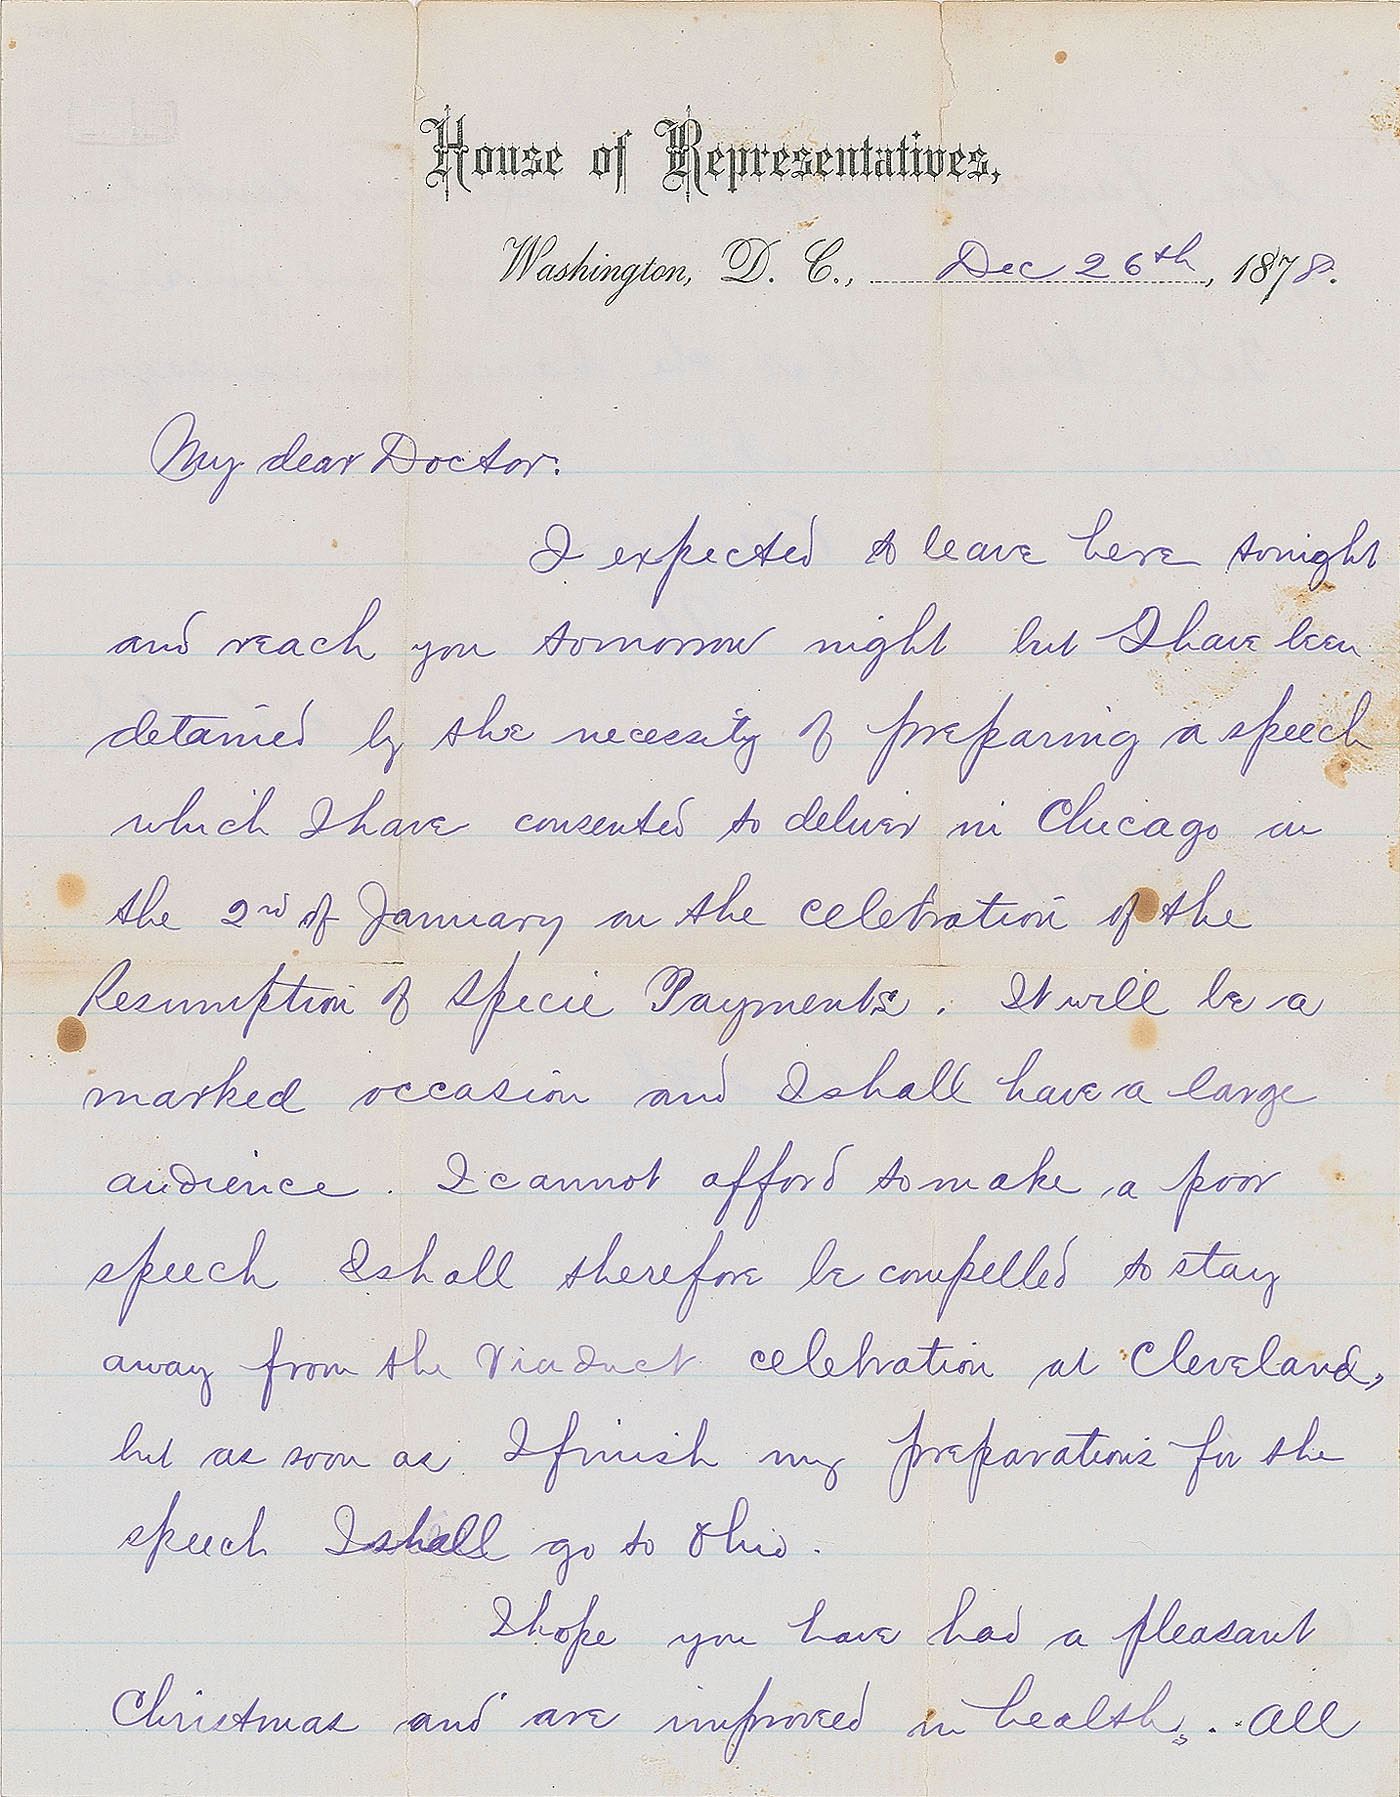 House of Representatives,
Washington, D. C., Dec 26th, 1878.
My dear Doctor.
I expected to leave here tonight
and reach you tomorrow night but I have been
detained by the necessity of preparing a speech
which I have consented to deliver in Chicago on
the 2nd of January on the celebration of the
Resumption of Specie Payments. It will be a
marked occasion and I shall have a large
audience. I cannot afford to make a poor
speech I shall therefore be compelled to stay
away from the Viaduct celebration at Cleveland,
but as soon as I finish my preparations for the
speech I shall go to Ohio.
I hope you have had a pleasant
Christmas and are improved in health. All